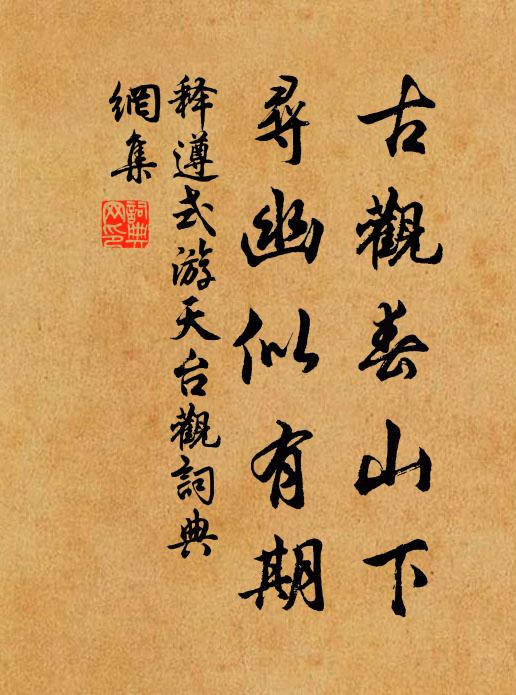 古觀春山下
尋幽似有期
释遵式游天台觀詞典
網集
詞典網印